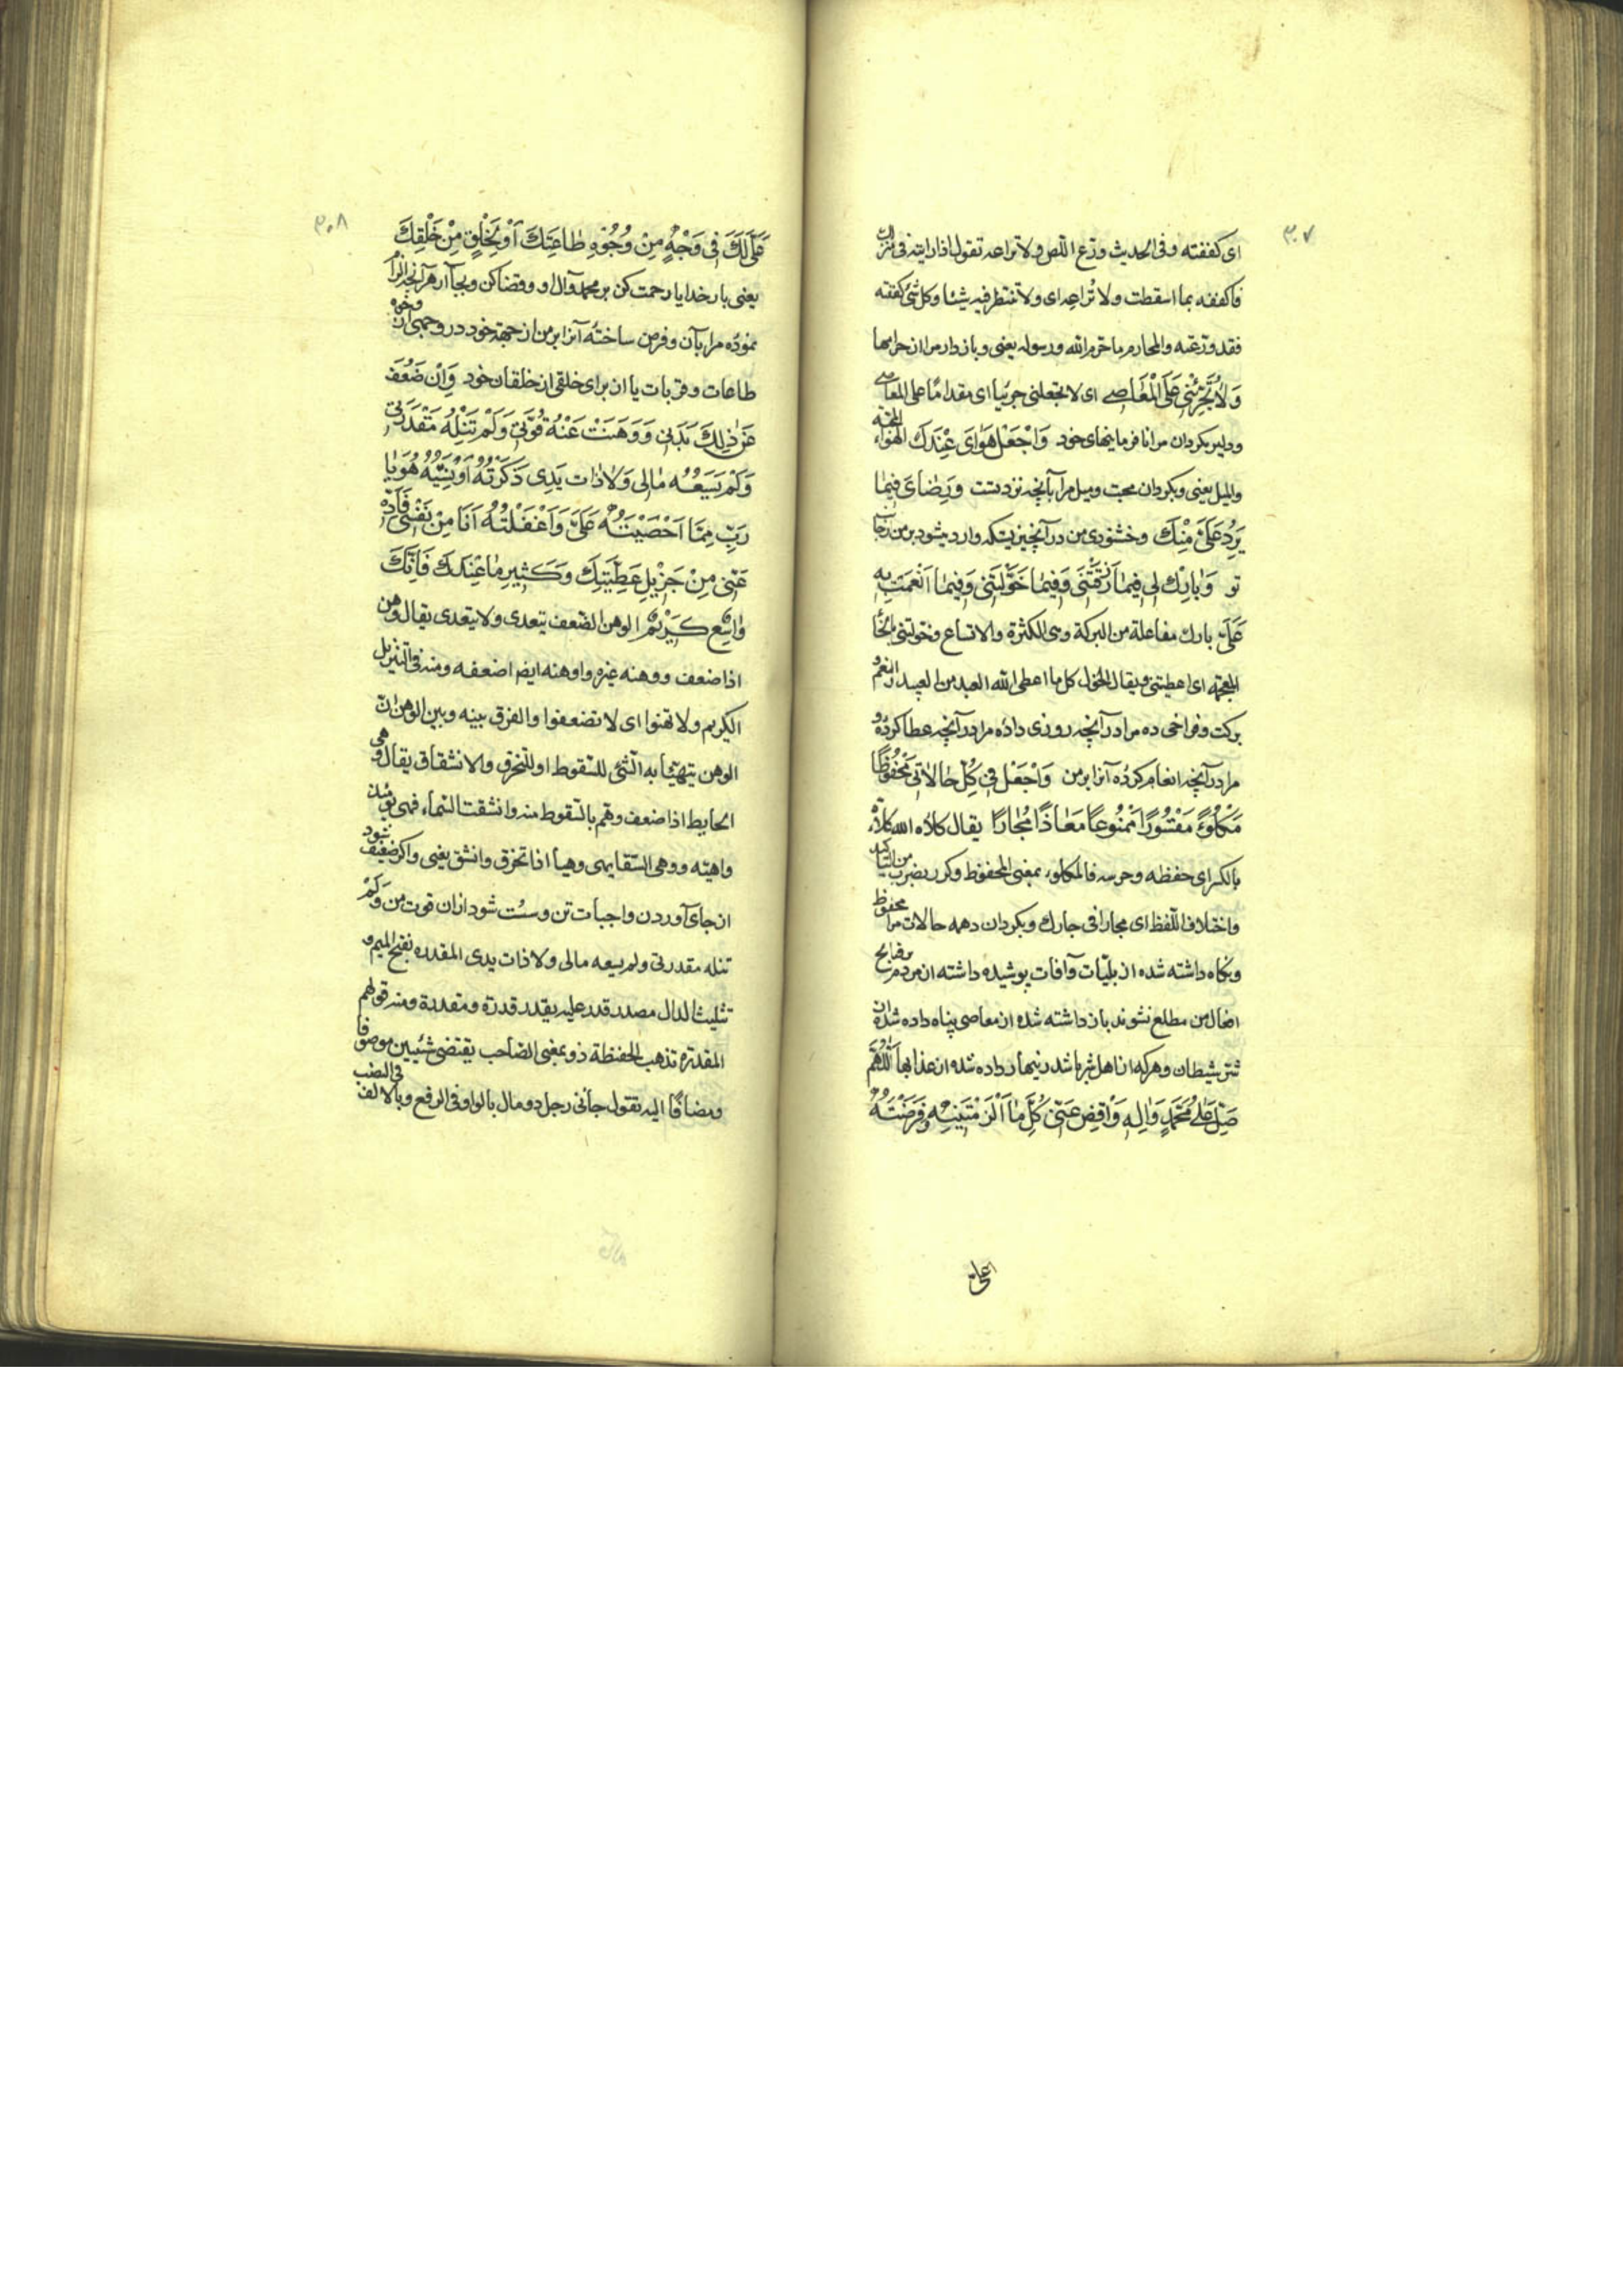 ٣٠٧
ای کففته و فی الحدیث ورّع اللّص ولا تراعه تقول اذا رایته فی منزلک
فاکففه بما اسقطت ولا تُراعه ای ولا تنتظر فیه شیئا وکل شیٔ کففته
فقد ورّعته والمحارم ما حرّم الله ورسوله یعنی و بازدار مرا از حرامها
وَلَا تُجَرِّئْنِی عَلَی الْمَعَاصِی ای لا تجعلنی جریئا ای مقداما علی المعاصی
ودلیر مکردان مرا نافرمانیهای خود وَاجْعَلْ هَوَایَ عِنْدَکَ الهوا المحبّة
والمیل یعنی وبکردان محبت ومیل مرا بآنچه نزد تست وَرِضَایَ فِیمَا
یَرِدُ عَلَیَّ مِنْکَ وخشنودی من در آنچیزیکه وارد میشود بر من از جانب
تو وَبَارِکْ لِی فِیمَا رَزَقْتَنِی وَفِیمَا خَوَّلْتَنِی وَفِیمَا اَنْعَمْتَ بِهِ
عَلَیَّ بارک مفاعلة من البرکة وهی الکثرة والاتساع وخوّلتنی بالخاء
المعجمه ای اعطیتنی ویقال الخول کل ما اعطی الله العبد من العبید والنعم
برکت وفراخی ده مرا در آنچه روزی داده مرا در آنچه عطا کردهٔ و
مرا در آنچه انعام کردهٔ آنرا بر من وَاجْعَلْنِی فِی کُلِّ حَالَاتِی مَحْفُوظًا
مَکْلُوءً مَسْتُورًا مَمْنُوعًا مَعَاذًا مُجَارًا یقال کلأه الله کلاءة
بالکسر ای حفظه وحرسه فالمکلوء بمعنی المحفوظ وکرر لضرب من التاکید
واختلاف اللّفظ ای مجارا فی جارک وبکردان در همه حالات مرا محفوظ
ونکاه داشته شده از بلیّات وآفات پوشیده داشته از مردم بر قبایح
افعال من مطلع نشوند بازداشته شده از معاصی پناه داده شده از
شرّ شیطان وهر که از اهل شر باشد زینهار داده شده از عذابها اَللّٰهُمَّ
صَلِّ عَلٰی مُحَمَّدٍ وَآلِهِ وَاقْضِ عَنِّی کُلَّ مَا اَلْزَمْتَنِیهِ وَفَرَضْتَهُ
٣٠٨
عَلَیَّ لَکَ فِی وَجْهٍ مِنْ وُجُوهِ طَاعَتِکَ اَوْ لِخَلْقٍ مِنْ خَلْقِکَ
یعنی بار خدایا رحمت کن بر محمد وآل او وقضا کن وبجا آر هر آنچه الزام
نمودهٔ مرا بآن وفرض ساختهٔ آنرا بر من از جهة خود در وجهی از وجوه
طاعات وقربات یا از برای خلقی از خلقان خود وَاِنْ ضَعُفَ
عَنْ ذٰلِکَ بَدَنِی وَوَهَنَتْ عَنْهُ قُوَّتِی وَلَمْ تَنَلْهُ مَقْدَرَتِی
وَلَمْ یَسَعْهُ مَالِی وَلَا ذَاتُ یَدِی ذَکَرْتُهُ اَوْ نَسِیتُهُ هُوَ یَا
رَبِّ مِمَّا اَحْصَیْتَهُ عَلَیَّ وَاَغْفَلْتُهُ اَنَا مِنْ نَفْسِی فَاَدِّهِ
عَنِّی مِنْ جَزِیلِ عَطِیَّتِکَ وَکَثِیرِ مَا عِنْدَکَ فَاِنَّکَ
وَاسِعٌ کَرِیمٌ الوهن الضعف یتعدی ولا یتعدی یقال وهن
اذا ضعف ووهنه غیره واوهنه ایضا اضعفه ومنه فی التنزیل
الکریم ولا تهنوا ای لا تضعفوا والفرق بینه وبین الوهی انّ
الوهن یتهیّأ به الشیٔ للسّقوط او للتخرق والانشقاق یقال وهی
الحایط اذا ضعف وهمّ بالسّقوط منه وانشقت السّماء فهی یومئذ
واهیه ووهی السّقا یهی وهیا اذا تخرق وانشق یعنی واکر ضعیف شود
از جای آوردن واجبات تن وسُست شود از ان قوت من وَلَمْ
تنله مقدرتی ولم یسعه مالی ولا ذات یدی المقدره بفتح المیم و
تثلیث الدال مصدر قدر علیه یقدر قدرة ومقدرة ومنه قولهم
المقدرة تذهب الحفیظة ذو بمعنی الصّاحب یقتضی شیئین موصوفا
ومضافًا الیه تقول جأنی رجل ذو مال بالواو فی الرفع وبالالف فی النصب